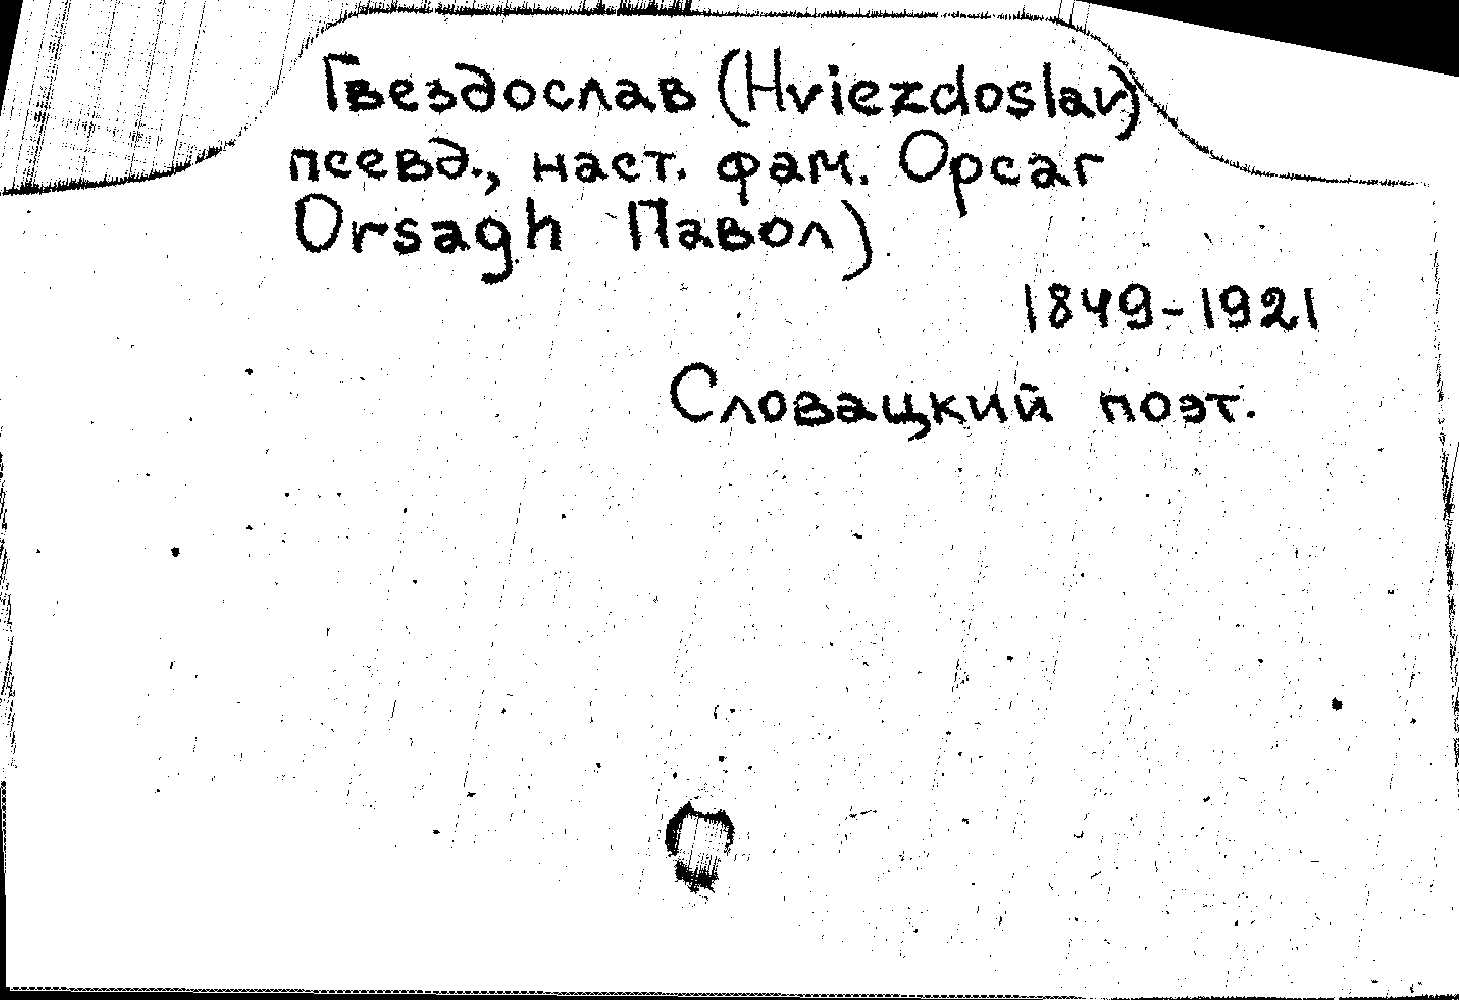 Гвездослав (Hviezdoslav)
псевд., наст. фам. Орсаг
Orsagh Павол)
1849-1921
Словацкий поэт.